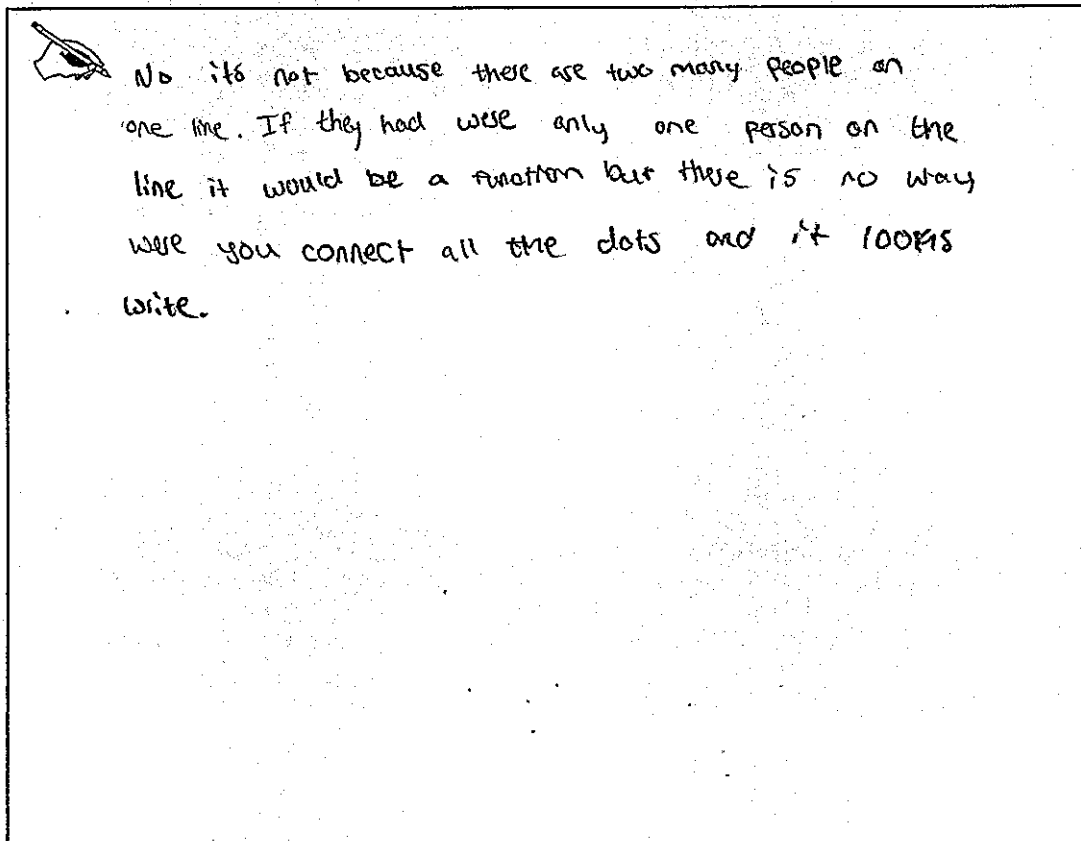 No its not because there are two many people on
one line. If they had were only one person on the
line it would be a function but there is no way
were you connect all the dots and it looks
write.